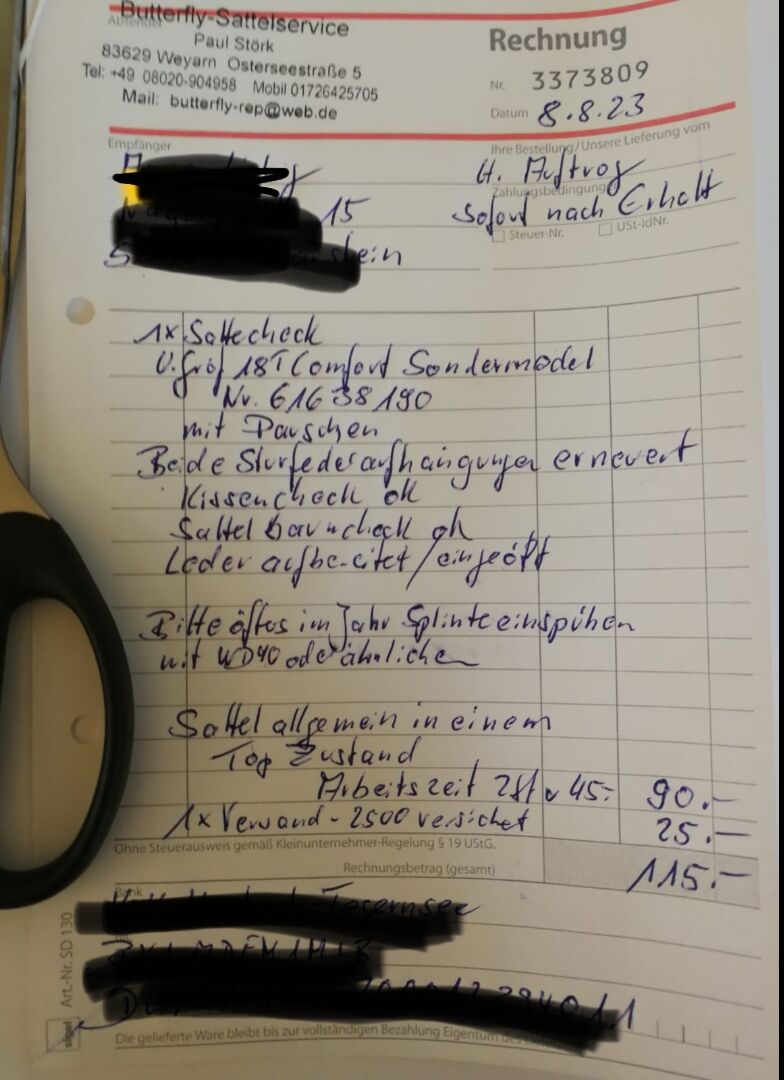 Butterfly-Sattelservice
Absender
Paul Störk
83629 Weyarn Osterseestraße 5
Tel: +49 08020-904958 Mobil 01726425705
Mail: butterfly-rep@web.de
Rechnung
Nr. 3373809
Datum 8.8.23
Empfänger
15
Ihre Bestellung/Unsere Lieferung vom
Auftrag
Zahlungsbedingungen
Sofort nach Erhalt
Steuer-Nr. USt-IdNr.
1x Sattecheck
18T Comfort Sondermodel
Nr. 61638190
mit Pauschen
Beide Sturfederaufhängungen erneuert
Kissencheck ok
Sattelbaumcheck ok
Leder aufbereitet/eingeölt
Bitte öfters im Jahr Splinte einsprühen
mit WD40 oder ähnlichen
Sattel allgemein in einem
Top Zustand
Arbeitszeit 2St 45.- 90.-
1x Versand - 2500 versichet 25.-
Ohne Steuerausweis gemäß Kleinunternehmer-Regelung § 19 UStG.
Rechnungsbetrag (gesamt) 115.-
Bank
Tegernsee
Art.-Nr. SD 130
sigel
Die gelieferte Ware bleibt bis zur vollständigen Bezahlung Eigentum des